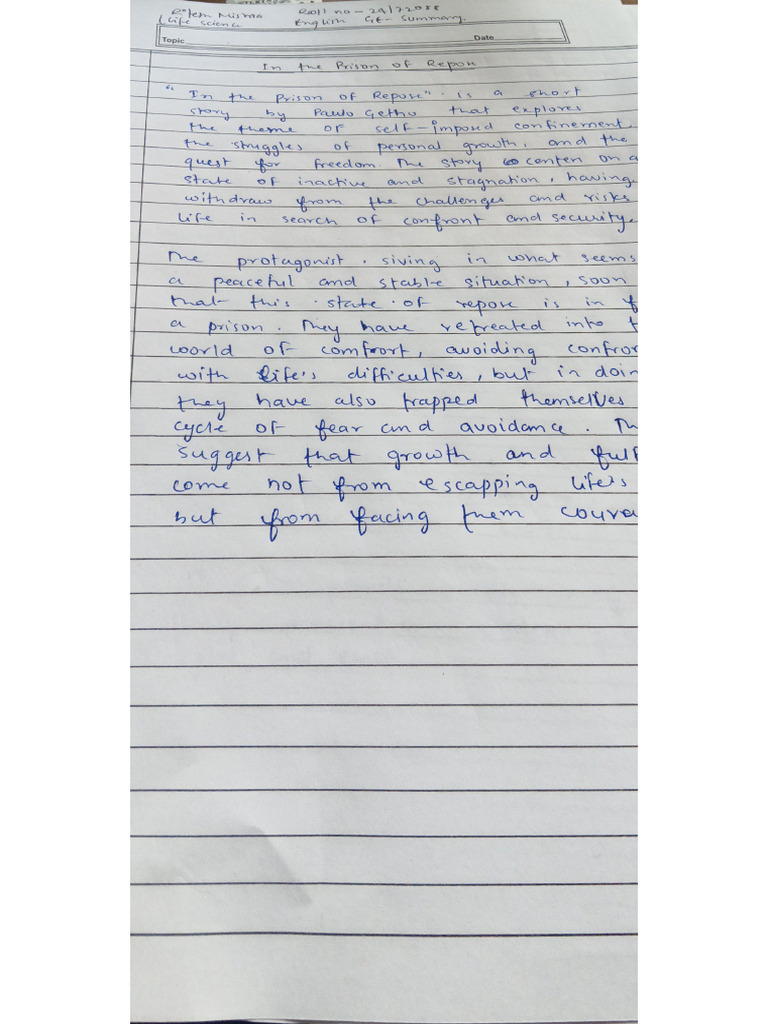 Misra Roll no - 24/72088
Life Science English GE - Summary.
Topic Date
In the Prison of Repon
"In the Prison of Repose" is a short
story by Paulo that explores
the theme of self-imposed confinement,
the struggles of personal growth, and the
quest for freedom. The story conten on a
state of inactive and stagnation, having
withdraw from the challenges and risks
life in search of confront and security.
The protagonist. siving in what seems
a peaceful and stable situation, soon
that this state of repose is in f
a prison. They have retreated into t
world of comfrort, avoiding confron
with life's difficulties, but in doin
they have also trapped themselves
cycle of fear and avoidance. Th
suggest that growth and fulf
come not from escapping life's
but from facing them coura